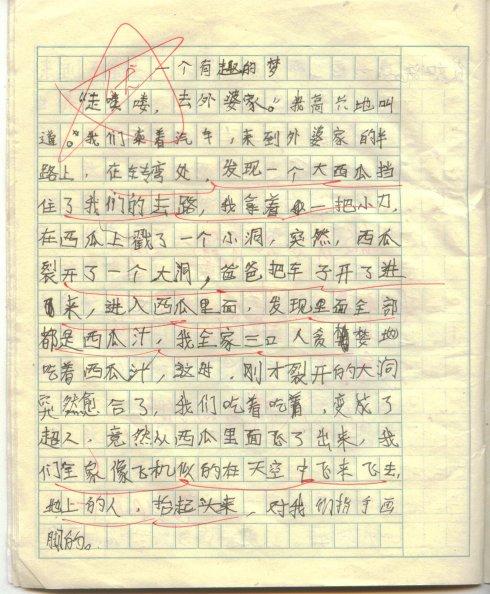 一个有趣的梦
“走喽喽，去外婆家。”我高兴地叫
道。”我们乘着汽车，来到外婆家的半
路上，在转弯处，发现一个大西瓜挡
住了我们的去路，我拿着一把小刀，
在西瓜上戳了一个小洞，突然，西瓜
裂开了一个大洞，爸爸把车子开了进
来，进入西瓜里面，发现里面全部
都是西瓜汁，我全家三口人贪婪地
吃着西瓜汁，这时，刚才裂开的大洞
突然愈合了，我们吃着吃着，变成了
超人，竟然从西瓜里面飞了出来，我
们全家像飞机似的在天空中飞来飞去，
地上的人，抬起头来，对我们指手画
脚的。